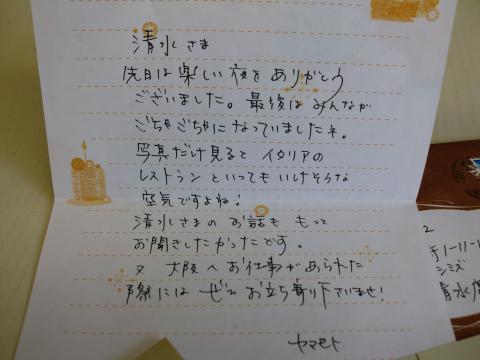 清水さま
先日は楽しい夜をありがとう
ございました。最後はみんなが
ごちゃごちゃになっていましたネ。
写真だけ見ると イタリアの
レストランといってもいけそうな
空気ですよね!
清水さまのお話も もっと
お聞きしたかったです。
又 大阪へお仕事があられた
際には ぜひお立ち寄り下さいませ!
ヤマモト
2
〒1-11-1
シミズ
清水